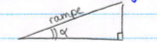 rampe
α